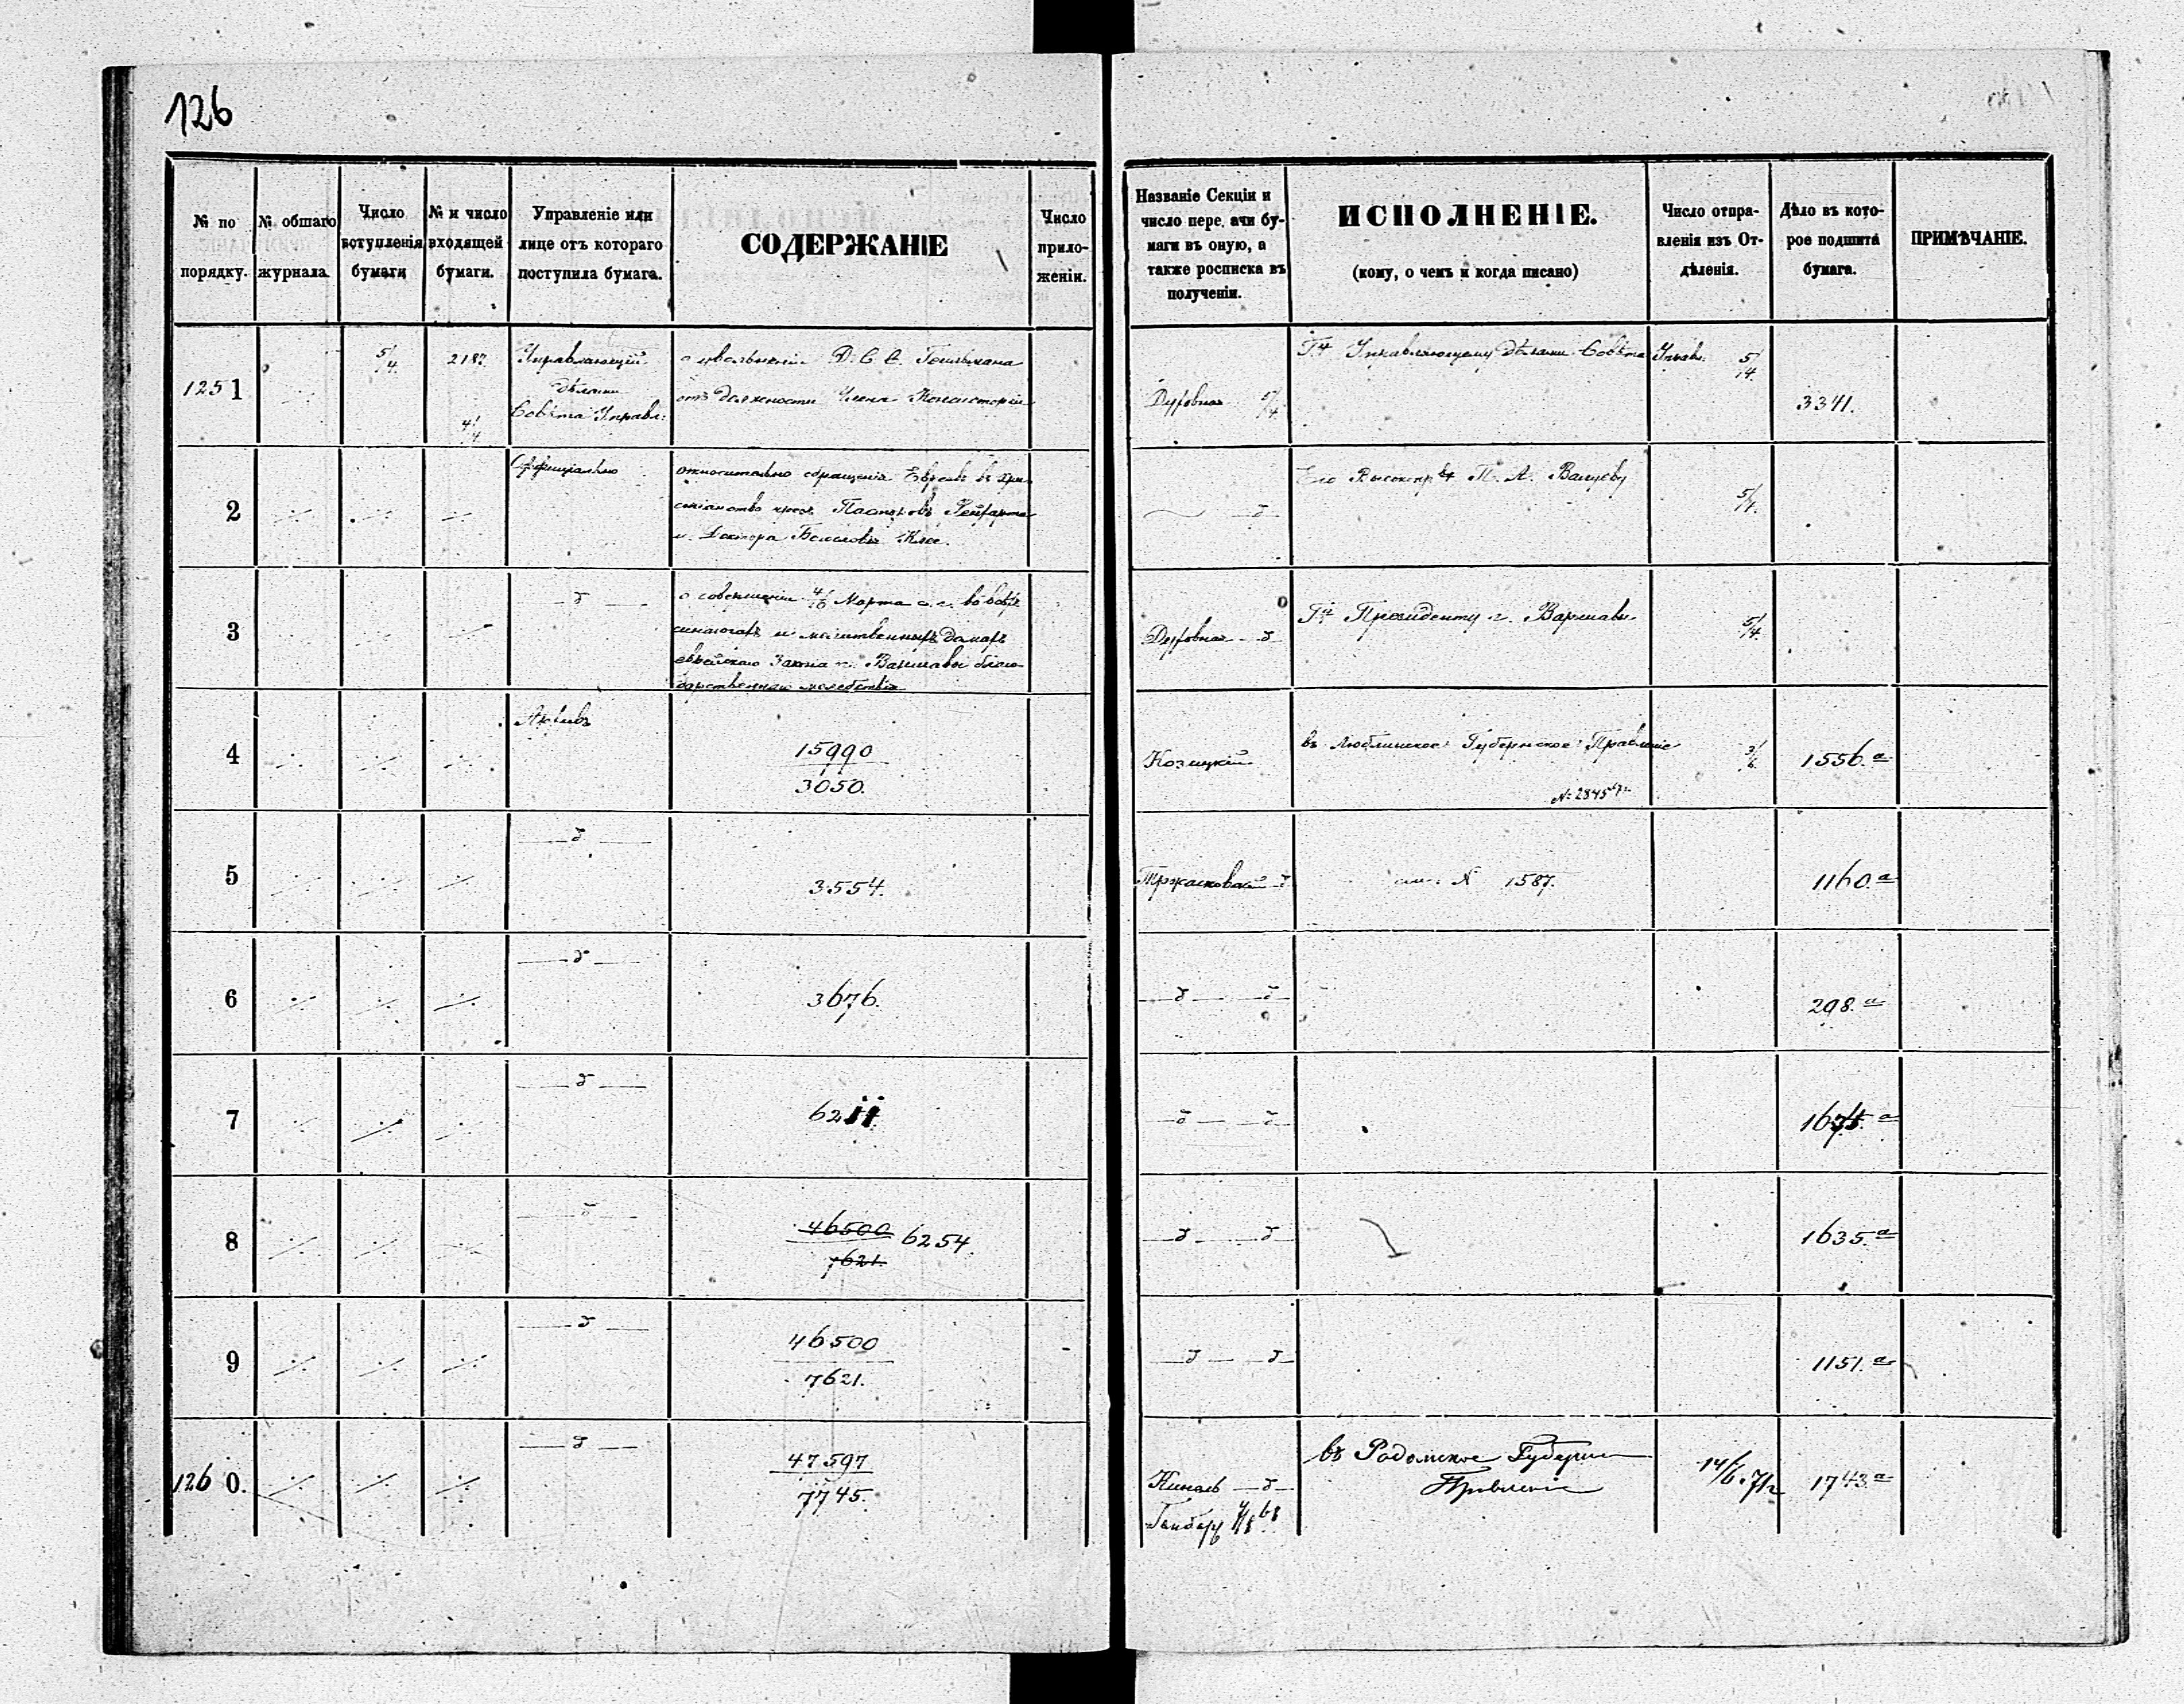 126
№ по порядку.
№ общаго журнала.
Число вступленія бумаги
№ и число входящей бумаги.
Управленіе или лице отъ котораго поступила бумага.
СОДЕРЖАНІЕ
Число прило-
женіи.
Названіе Секціи и
число пере.ачи бу-
маги въ оную, а
также росписка въ
полученіи.
ИСПОЛНЕНІЕ.
(кому, о чемъ и когда писано)
Число отпра-
вленія изъ От-
дѣленія.
Дѣло въ кото-
рое подшита
бумага.
ПРИМѢЧАНІЕ.
1251
5/4.
2187.
4/4
Управляющій
дѣлами
Совѣта Управл:
о увольненіи Д. С. С.
отъ должности Члена Консисторіи
Духовная 5/4.
Гну Управляющему дѣлами Совѣта Управл.
5/4.
3341.
2
Оффиціально
относительно обращенія Евреевъ въ хри-
стіанство чрезъ Пасторовъ
и Доктора Богословія
д
Его Высокопр-ву П. А. Валуеву
5/4.
3
д
о совершеніи Марта с. г. во всѣхъ
синагогахъ и молитвенныхъ домахъ
еврейскаго Закона г. Варшавы благо-
дарственнаго молебствія
Духовная д
Гну Президенту г. Варшавы
5/4.
4
Архивъ
15990
3050.
Козицкій
въ Люблинское Губернское Правленіе
№ 2845
3/6.
1556.а
5
д
3554.
Тржасковскій д
см. № 1587.
1160.а
6
д
3676.
д д
298.а
7
д
6211.
д д
8
д
46500 6254
7621.
д д
1635.а
9
д
46500
7621.
д д
1151.а
1260.
д
47597
7745.
д
въ Радомское Губерн
Правленіе
14/6.71г
1743а